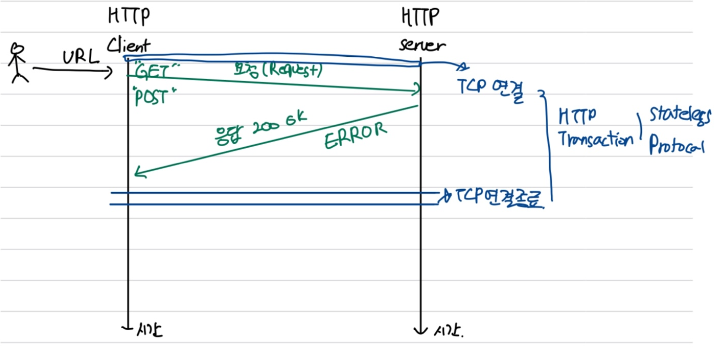 HTTP
Client
HTTP
server
URL
"GET"
요청(Request)
"POST"
TCP 연결
응답 200 OK
ERROR
HTTP
Transaction
Stateless
Protocal
TCP연결종료
시간
시간.